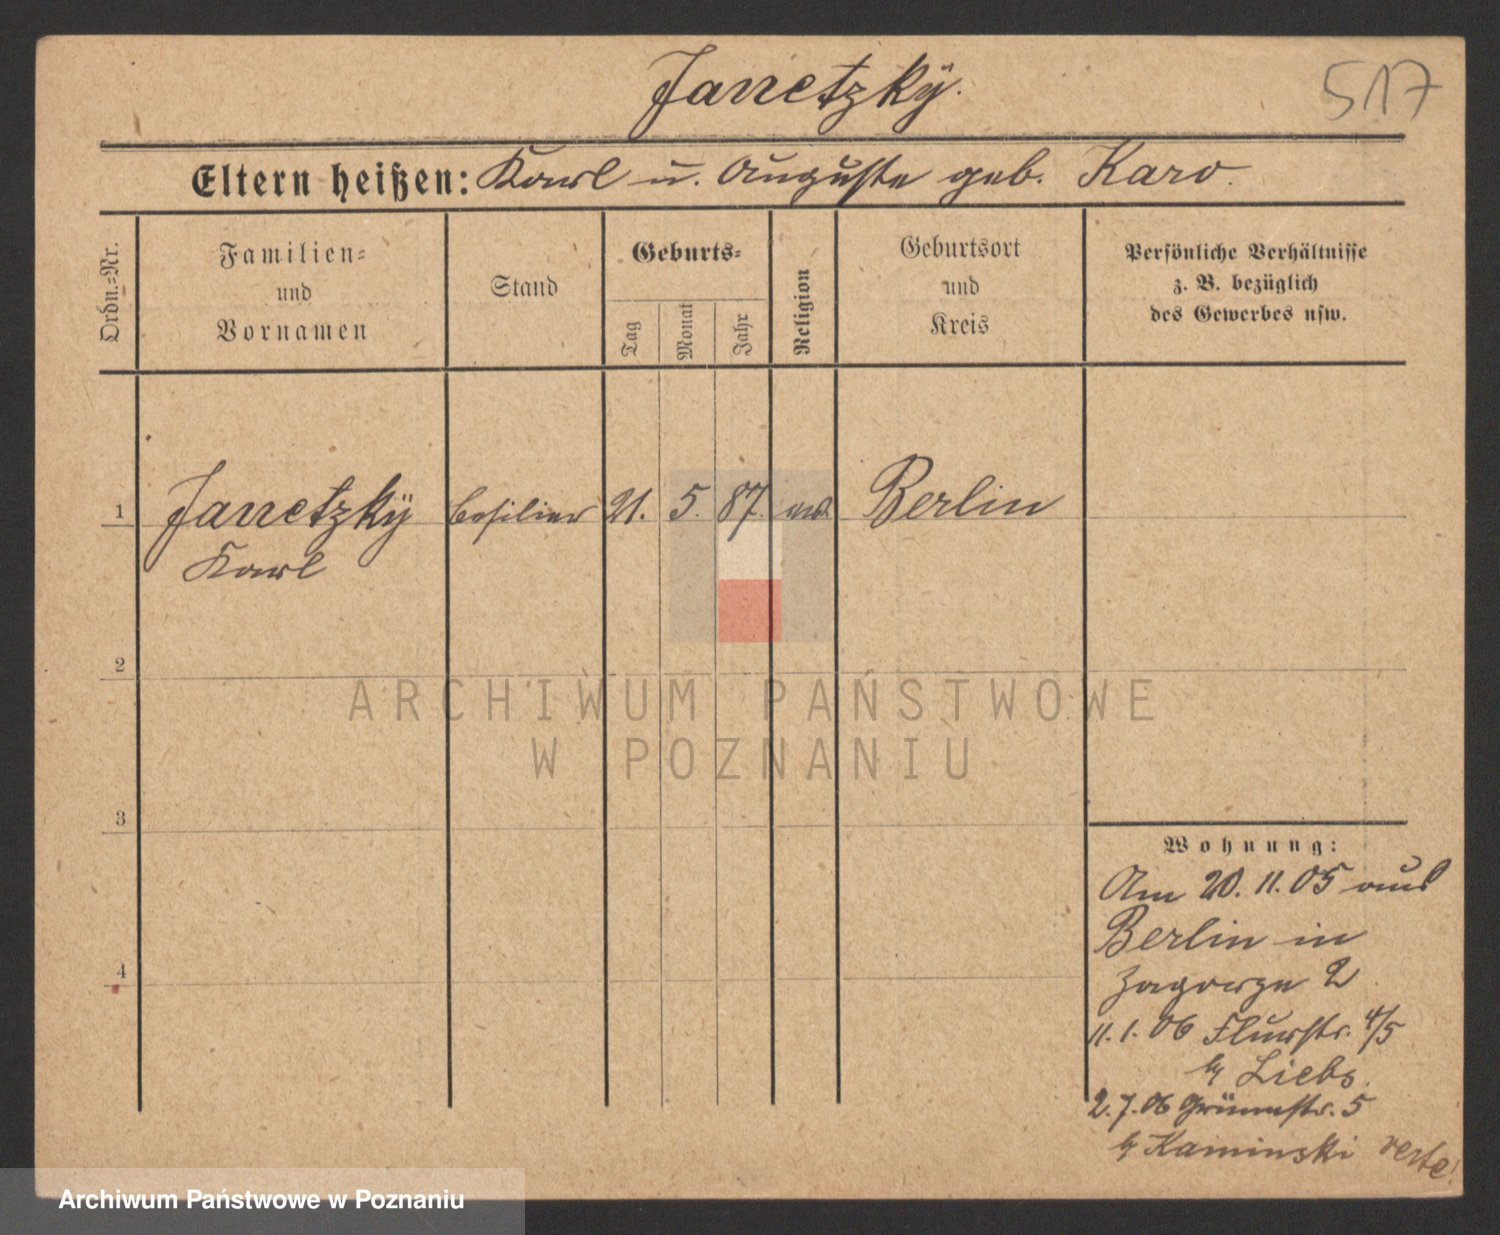 Janetzky.
517
Eltern heißen: Karl u. Auguste geb. Karo.
Ordn.=Nr.
Familien=
und
Vornamen
Stand
Geburts=
Tag
Monat
Jahr
Religion
Geburtsort
und
Kreis
Persönliche Verhältnisse
z. B. bezüglich
des Gewerbes usw.
1
Janetzky
21. 5. 87.
Berlin
Karl
2
ARCHIWUM PAŃSTWOWE
W POZNANIU
3
Wohnung:
Am 20. 11. 05 aus
Berlin in
Zagorze 2
4
11. 1. 06 Flurstr. 4/5
b/ Liebs.
2. 7. 06 Grünestr. 5
b/ Kaminski verte!
Archiwum Państwowe w Poznaniu